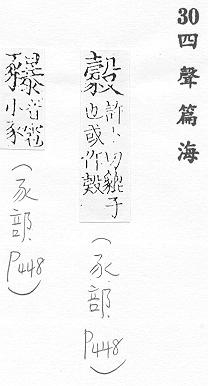 30 四聲篇海
豰 許卜切貔子
也或作
(豕部 P448)
音
小豕
(豕部 P448)